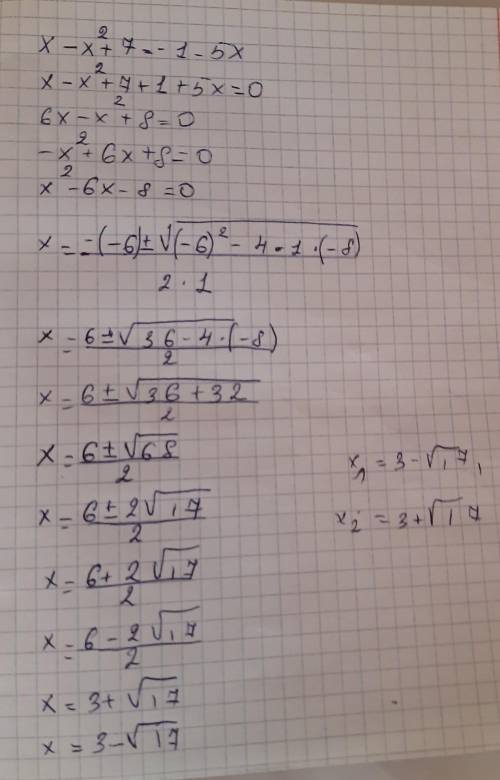 x - x² + 7 = -1 - 5x
x - x² + 7 + 1 + 5x = 0
6x - x² + 8 = 0
-x² + 6x + 8 = 0
x² - 6x - 8 = 0
x = -(-6) ± √(-6)² - 4 · 1 · (-8)
2 · 1
x = 6 ± √36 - 4 · (-8)
2
x = 6 ± √36 + 32
2
x = 6 ± √68
2
x = 6 ± 2√17
2
x = 6 + 2√17
2
x = 6 - 2√17
2
x = 3 + √17
x = 3 - √17
x₁ = 3 - √17,
x₂ = 3 + √17